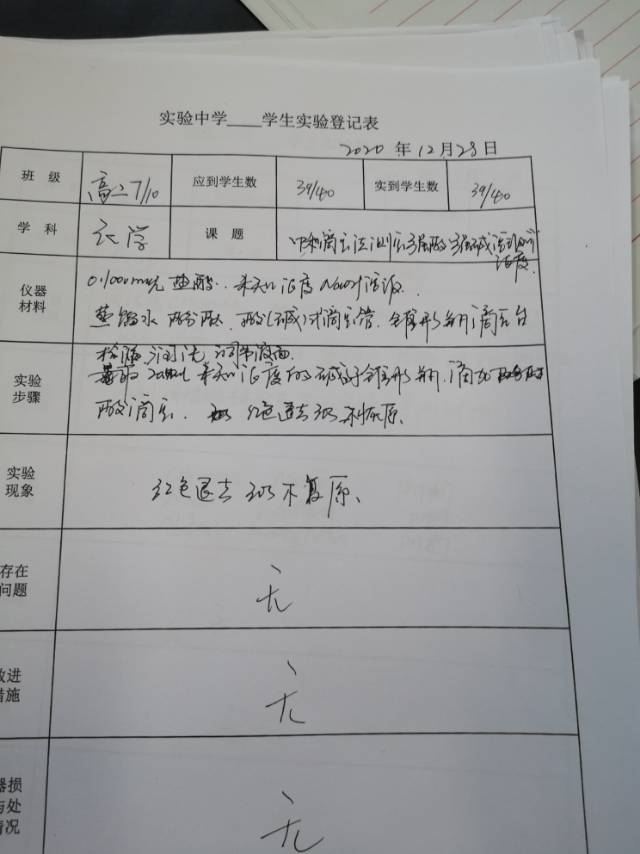 实验中学____学生实验登记表
2020 年 12 月 28 日
班 级 高二7/10 应到学生数 39/40 实到学生数 39/40
学 科 化学 课 题 中和滴定法测定强酸强碱溶液的
浓度.
仪器 0.100mol/L 盐酸.. 未知浓度NaOH溶液.
材料 蒸馏水 酚酞. 酸(碱)式滴定管. 锥形瓶 滴定台
检漏. 润洗. 调节液面
实验 量取20mL 未知浓度的碱于锥形瓶. 滴加酚酞
步骤 酸滴定. 红色退去30s不复原.
实验
现象 红色退去 30s 不复原.
存在
问题 无
改进
措施 无
器损
与处
情况 无